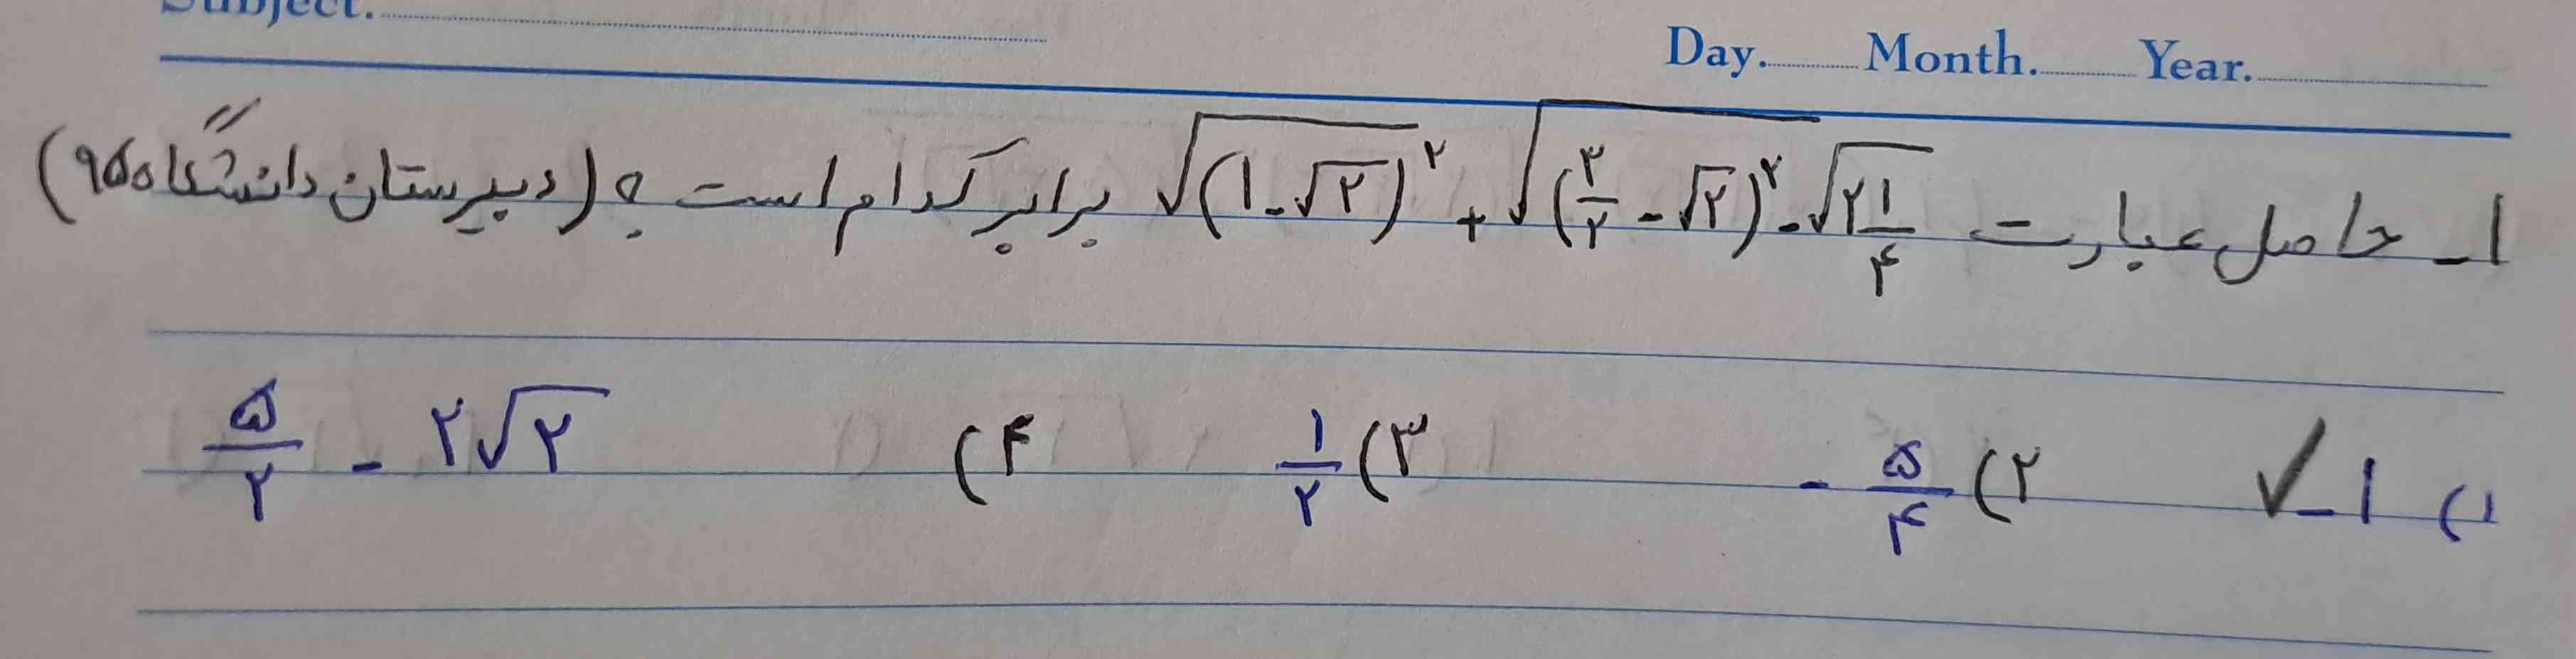 Subject.
Day. Month. Year.
۱_ حاصل عبارت √(۱-√۲)^۲ + √(۳/۲ - √۲)^۲ - √۲ ۱/۴ برابر کدام است ؟ (دبیرستان دانشگاه ۹۵)
۱) -۱ ✓ ۲) -۵/۴ ۳) ۱/۲ ۴) ۵/۲ - ۲√۲